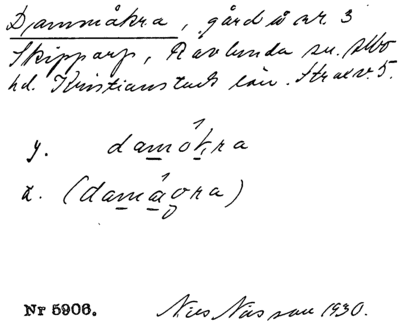 Djammåkra, gård å nr. 3
Skipparp, Ravlunda sn. Albo
hd. Kristianstads län. Strax v. 5.
y. damokra
x. (damågra)
Nr 5906. Nils Nilsson 1930.